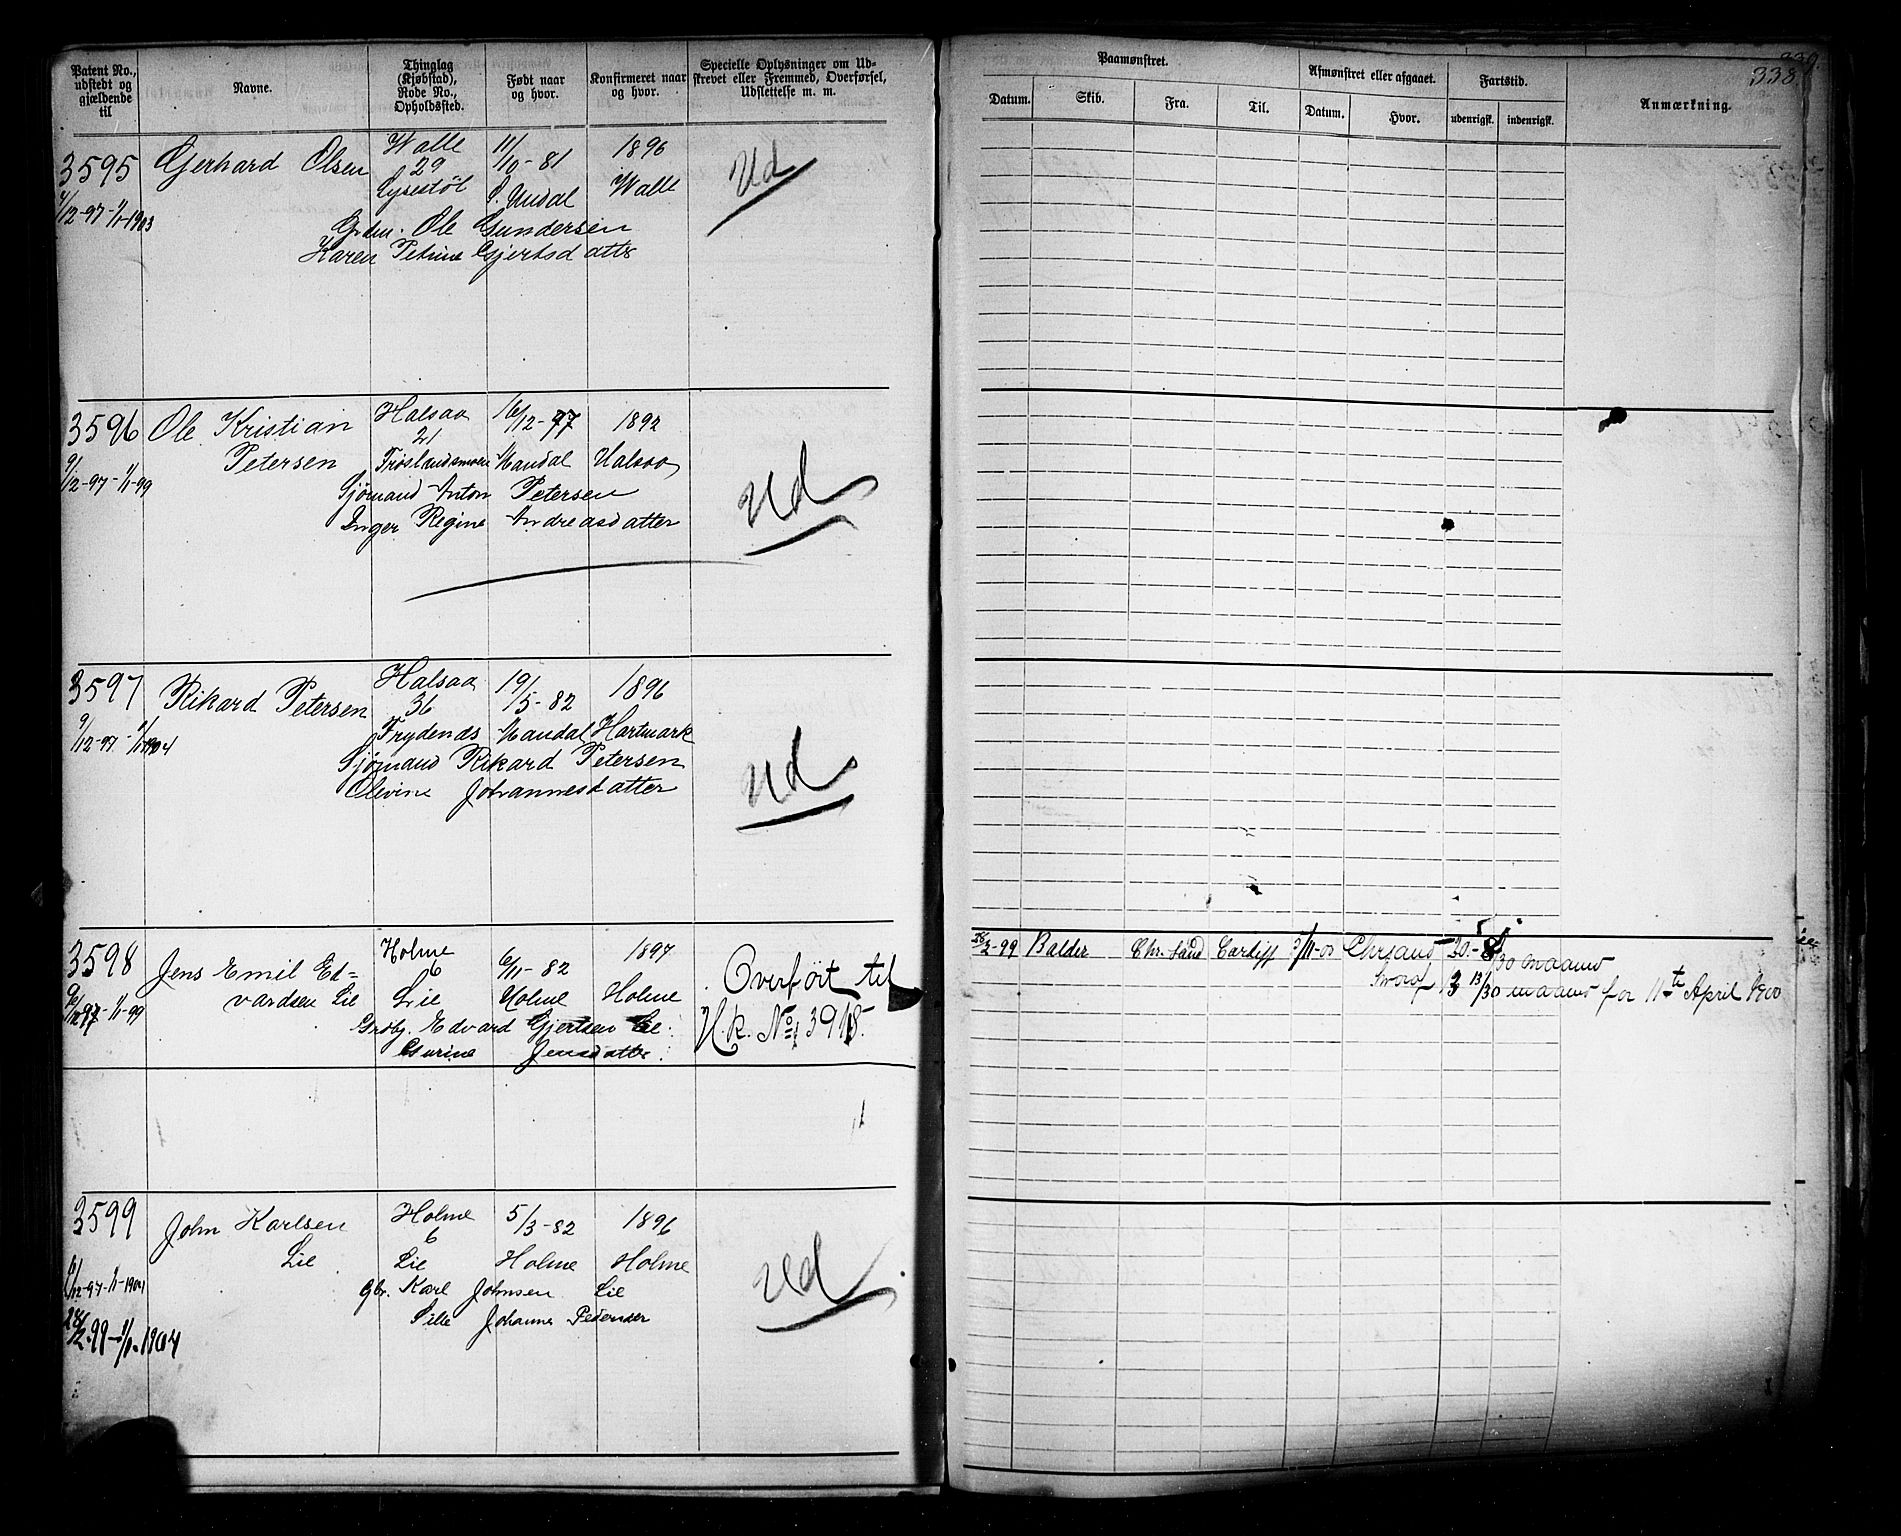 Patent No., udstedt og gjældende til
Navne.
Thinglag (Kjøbstad), Rode No., Opholdssted.
Født naar og hvor.
Konfirmeret naar og hvor.
Specielle Oplysninger om Udskrevet eller Fremmed, Overførsel, Udslettelse m. m.
3595 Gerhard Olsen Walle 11/10-81 1896 Ud
29
Lysestöl S. Undal Walle
/12-97-1/1-1903
Grdm. Ole Gundersen
Karen Petrine Gjertsdatter
3596 Ole Kristian Halsaa 16/12-77 1892 Ud
21
Petersen Frøslandsmoen Mandal Halsaa
9/12-97-1/1-99
Sjømand Anton Petersen
Inger Regine Andreasdatter
3597 Rikard Petersen Halsaa 19/5-82 1896 Ud
36
Frydends Mandal Hartmark
9/12-97-1/1-1904
Sjømand Rikard Petersen
Olevine Johannesdatter
3598 Jens Emil Ed= Holme 6/11-82 1897 Overfört til
6
vardsen Lie Lie Holme Holme
/12 97-1/1-99
Grdbr. Edvard Gjertsen Lie H.R. No 3918.
Gurine Jensdatter.
3599 John Karlsen Holme 5/3-82 1896 Ud
6
Lie Lie Holme Holme
/12-97-1/1-1904
Gbr. Karl Johnsen Lie
28/2-99-1/1-1904
Sille Johanne Pedersder
338.
Paamønstret.
Afmønstret eller afgaaet.
Fartstid.
Anmærkning.
Datum. Skib. Fra. Til. Datum. Hvor. udenrigsk. indenrigsk.
28/2-99 Balder Chr. sand Cardiff 3/11-00 Chrsand 20-8/30 maaned
13/30 maaned for 11te April 1900